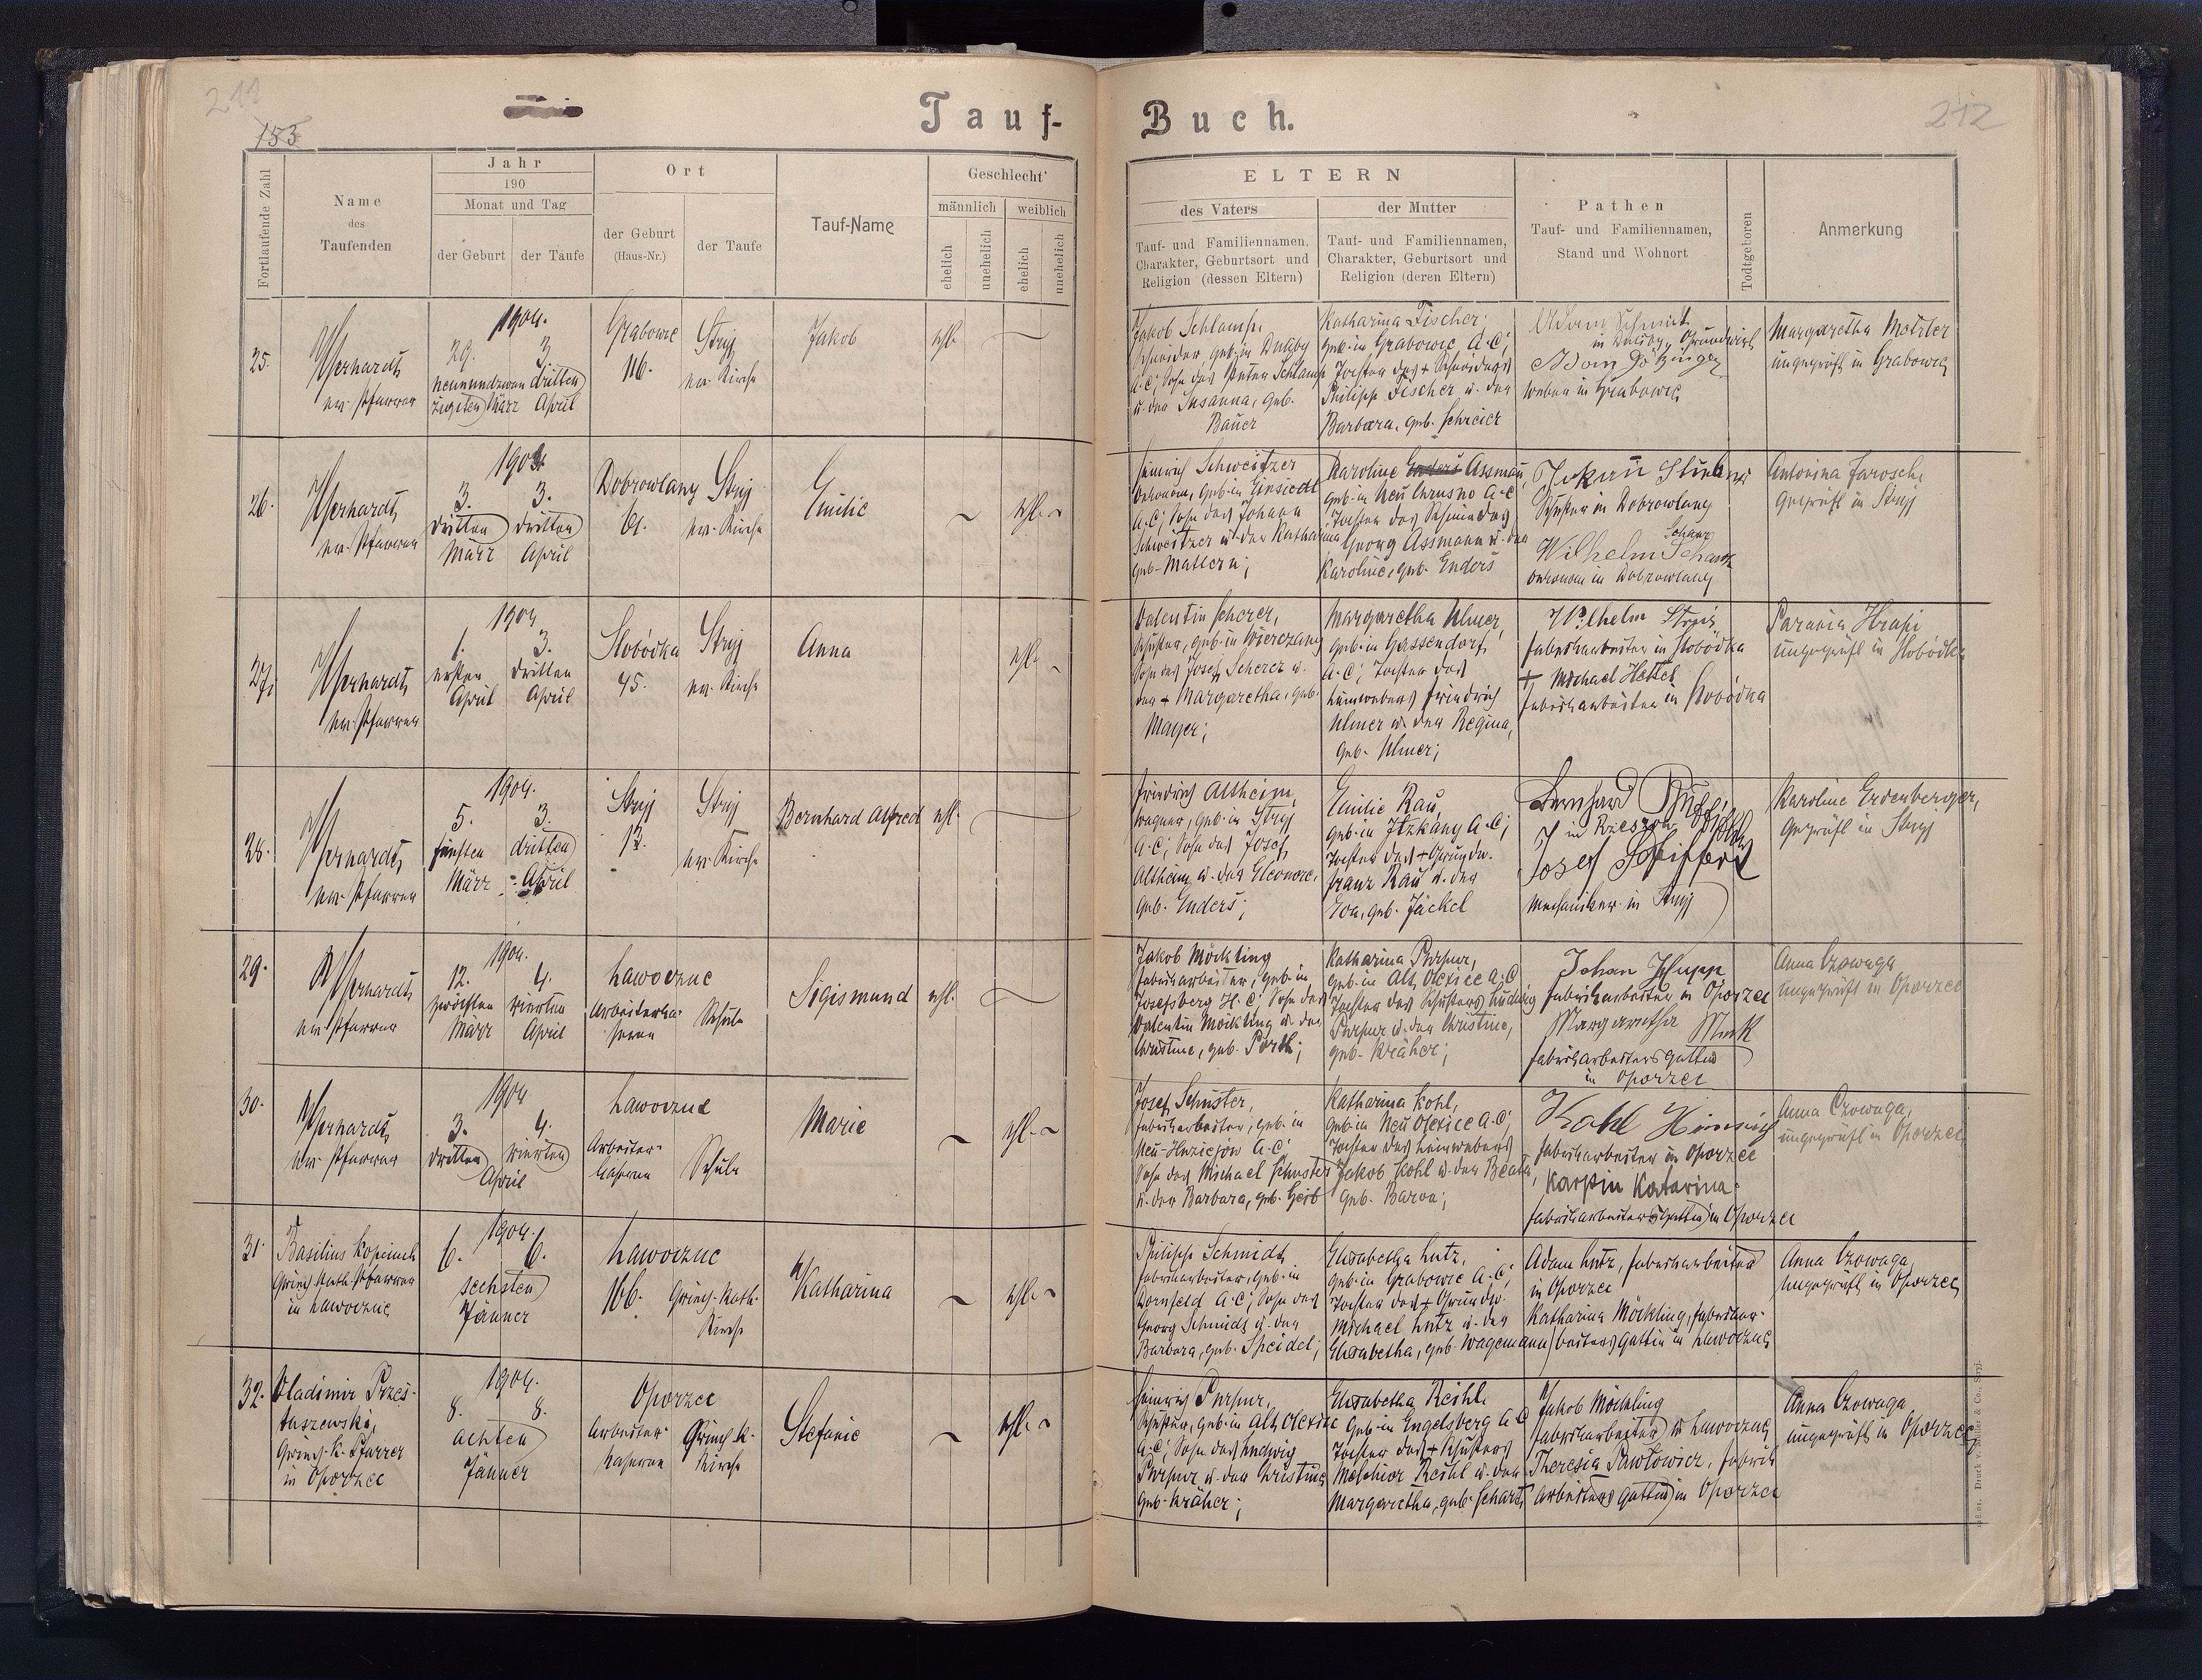 211
155
Tauf-
Buch.
212
Fortlaufende Zahl
Name
des
Taufenden
Jahr
190
Monat und Tag
der Geburt
der Taufe
Ort
der Geburt
(Haus-Nr.)
der Taufe
Tauf-Name
Geschlecht
männlich
weiblich
ehelich
unehelich
ehelich
unehelich
ELTERN
des Vaters
Tauf- und Familiennamen,
Charakter, Geburtsort und
Religion (dessen Eltern)
der Mutter
Tauf- und Familiennamen,
Charakter, Geburtsort und
Religion (deren Eltern)
Pathen
Tauf- und Familiennamen,
Stand und Wohnort
Todtgeboren
Anmerkung
25.
ev. Pfarrer
1904.
29. 3.
neunundzwan dritten
zigsten März April
Grabowce
116.
Stryj
ev. Kirche
Jakob
ehl.
Jakob Schlamp,
Schneider, geb. in
A.C.; Sohn des Peter Schlamp
u. der Susanna, geb.
Bauer
Katharina Fischer;
geb. in Grabowce A.C;
Tochter des + Schneiders
Philipp Fischer u. der
Barbara, geb. Schreier
Adam Schmidt
Adam
Weber in Grabowce
Margaretha Metzler
ungeprüft in Grabowce
26.
ev. Pfarrer
1904
3. 3.
dritten dritten
März April
Dobrowlany
61.
Stryj
ev. Kirche
Emilie
ehl.
Heinrich Schweitzer
Oekonom, geb. in Einsiedl
A.C; Sohn des Johann
Schweitzer u. der Katharina
geb. Mattern;
Karoline Enders Assmañ,
geb. in Neu Chrusno A.C
Tochter des Schmiedes
Georg Assmann u. der
Karoline, geb. Enders
Schuster in Dobrowlany
Schanz
Wilhelm Schanz
Oekonom in Dobrowlany
Antonina Jarosch,
geprüft in Stryj
27.
ev. Pfarrer
1904
1. 3.
ersten dritten
April April
Slobódka
45.
Stryj
ev. Kirche
Anna
ehl.
Valentin Scherer,
Schuster, geb. in Wierczany
Sohn des Josef Scherer u.
der + Margaretha, geb.
Mayer;
Margaretha Ulmer,
geb. in Gassendorf,
A.C; Tochter des
Leinwebers Friedrich
Ulmer u. der Regina,
geb. Ulmer;
Wilhelm
Fabriksarbeiter in Slobódka
+ Michael Hettel
Fabriksarbeiter in Slobódka
Parania Hrapi
ungeprüft in Slobódka
28.
ev. Pfarrer
1904.
5. 3.
fünften dritten
März April
Stryj
Stryj
ev. Kirche
Bernhard Alfred
ehl.
Friedrich Altheim,
Wagner, geb. in Stryj
A.C; Sohn des Josef
Altheim u. der Eleonore,
geb. Enders;
Emilie Rau,
geb. in Itzkany A.C;
Tochter des + Grundw.
Franz Rau u. der
Eva, geb. Jäckel
Bernhard
Josef
Mechaniker in Stryj
Karoline Erdenberger,
geprüft in Stryj
29.
ev. Pfarrer
1904.
12. 4.
zwölften vierten
März April
Lawoczne
Arbeiterka-
serne
Schule
Sigismund
ehl.
Jakob Möckling
Fabriksarbeiter, geb. in
Josefsberg H.C; Sohn des
Valentin Möckling u. der
Christine, geb. Porth;
Katharina Purpur,
geb. in Alt Olexice A.C
Tochter des Schusters Ludwig
Purpur u. der Christine,
geb. Kräher;
Johan
Fabriksarbeiter in Oporzec
Margaretha
Fabriksarbeiters Gattin
in Oporzec
Anna Czowaga
ungeprüft in Oporzec
30.
ev. Pfarrer
1904
3. 4.
dritten vierten
April
Lawoczne
Arbeiter-
kaserne
Schule
Marie
ehl.
Josef Schuster,
Fabriksarbeiter, geb. in
A.C;
Sohn des Michael Schuster
u. der Barbara, geb. Gerb
Katharina Kohl,
geb. in Neu Olexice A.C;
Tochter des Leinwebers
Jakob Kohl u. der Beata,
geb. Baron;
Kohl Heinrich
Fabriksarbeiter in Oporzec
Karpin Katarina
Fabriksarbeiters Gattin in Oporzec
Anna Czowaga,
ungeprüft in Oporzec
31.
Basilius
Griech. kath. Pfarrer
in Lawoczne
1904.
6. 6.
sechsten
Jänner
Lawoczne
166.
Griech. kath.
Kirche
Katharina
ehl.
Philipp Schmidt,
Fabriksarbeiter, geb. in
Dornfeld A.C; Sohn des
Georg Schmidt u. der
Barbara, geb. Speidel;
Elisabetha Lutz,
geb. in Grabowce A.C;
Tochter des + Grundw.
Michael Lutz u. der
Elisabetha, geb. Wagemann
Adam Lutz, Fabriksarbeiter
in Oporzec
Katharina Möckling, Fabriksar-
beiters Gattin in Lawoczne
Anna Czowaga,
ungeprüft in Oporzec
32.
Vladimir Przes-
taszewski,
Griech. K. Pfarrer
in Oporzec
1904.
8. 8.
achten
Jänner
Oporzec
Arbeiter-
kaserne
Griech. k.
Kirche
Stefanie
ehl.
Heinrich Purpur,
Schuster, geb. in Alt Olexice
A.C; Sohn des Ludwig
Purpur u. der Christine
geb. Kräher;
Elisabetha Reihl,
geb. in Engelsberg A.C
Tochter des + Schusters
Melchior Reihl u. der
Margaretha, geb. Scharf
Jakob Möckling
Fabriksarbeiter in Lawoczne
Theresia Pawłowicz, Fabriks
arbeiters Gattin in Oporzec
Anna Czowaga
ungeprüft in Oporzec